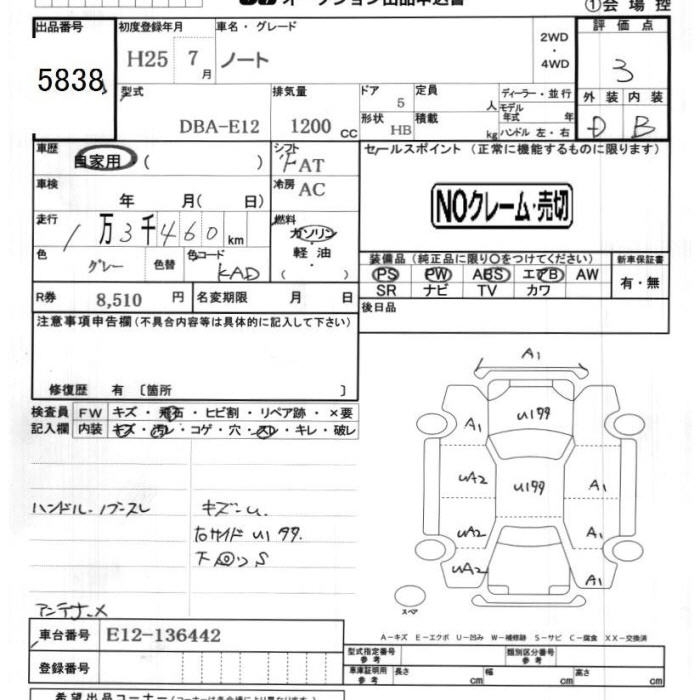 オークション出品申込書
①会場控
出品番号
5838
初度登録年月
H25 7月
車名・グレード
ノート
2WD
・
4WD
評価点
3
外装 内装
D B
型式
DBA-E12
排気量
1200 CC
ドア
5
形状
HB
定員
人
積載
kg
ディーラー・並行
モデル年式 年
ハンドル 左・右
車歴
自家用 ( )
シフト
FAT
車検
年 月( 日)
冷房
AC
走行
1万3千460 km
燃料
ガソリン
軽油
( )
色
グレー
色替
色コード
KAD
R券
8,510 円
名変期限 月 日
セールスポイント (正常に機能するものに限ります)
NOクレーム・売切
装備品 (純正品に限り○をつけてください)
PS PW ABS エアB AW
SR ナビ TV カワ
新車保証書
有・無
後日品
注意事項申告欄 (不具合内容等は具体的に記入して下さい)
修復歴 有 〔箇所 〕
検査員
記入欄
FW キズ・飛石・ヒビ割・リペア跡・×要
内装 キズ・汚レ・コゲ・穴・スレ・キレ・破レ
ハンドル・ノブスレ
キズ～U.
右サイドU1 99.
下回りS
アンテナ～X
A1
U199
A1
UA2
U199
A1
UA2
A1
UA2
A1
スペア
A-キズ E-エクボ U-凹み W-補修跡 S-サビ C-腐食 XX-交換済
車台番号
E12-136442
登録番号
型式指定番号
参考
類別区分番号
参考
車庫証明用
参考
長さ cm
幅 cm
高さ cm
希望出品コーナー